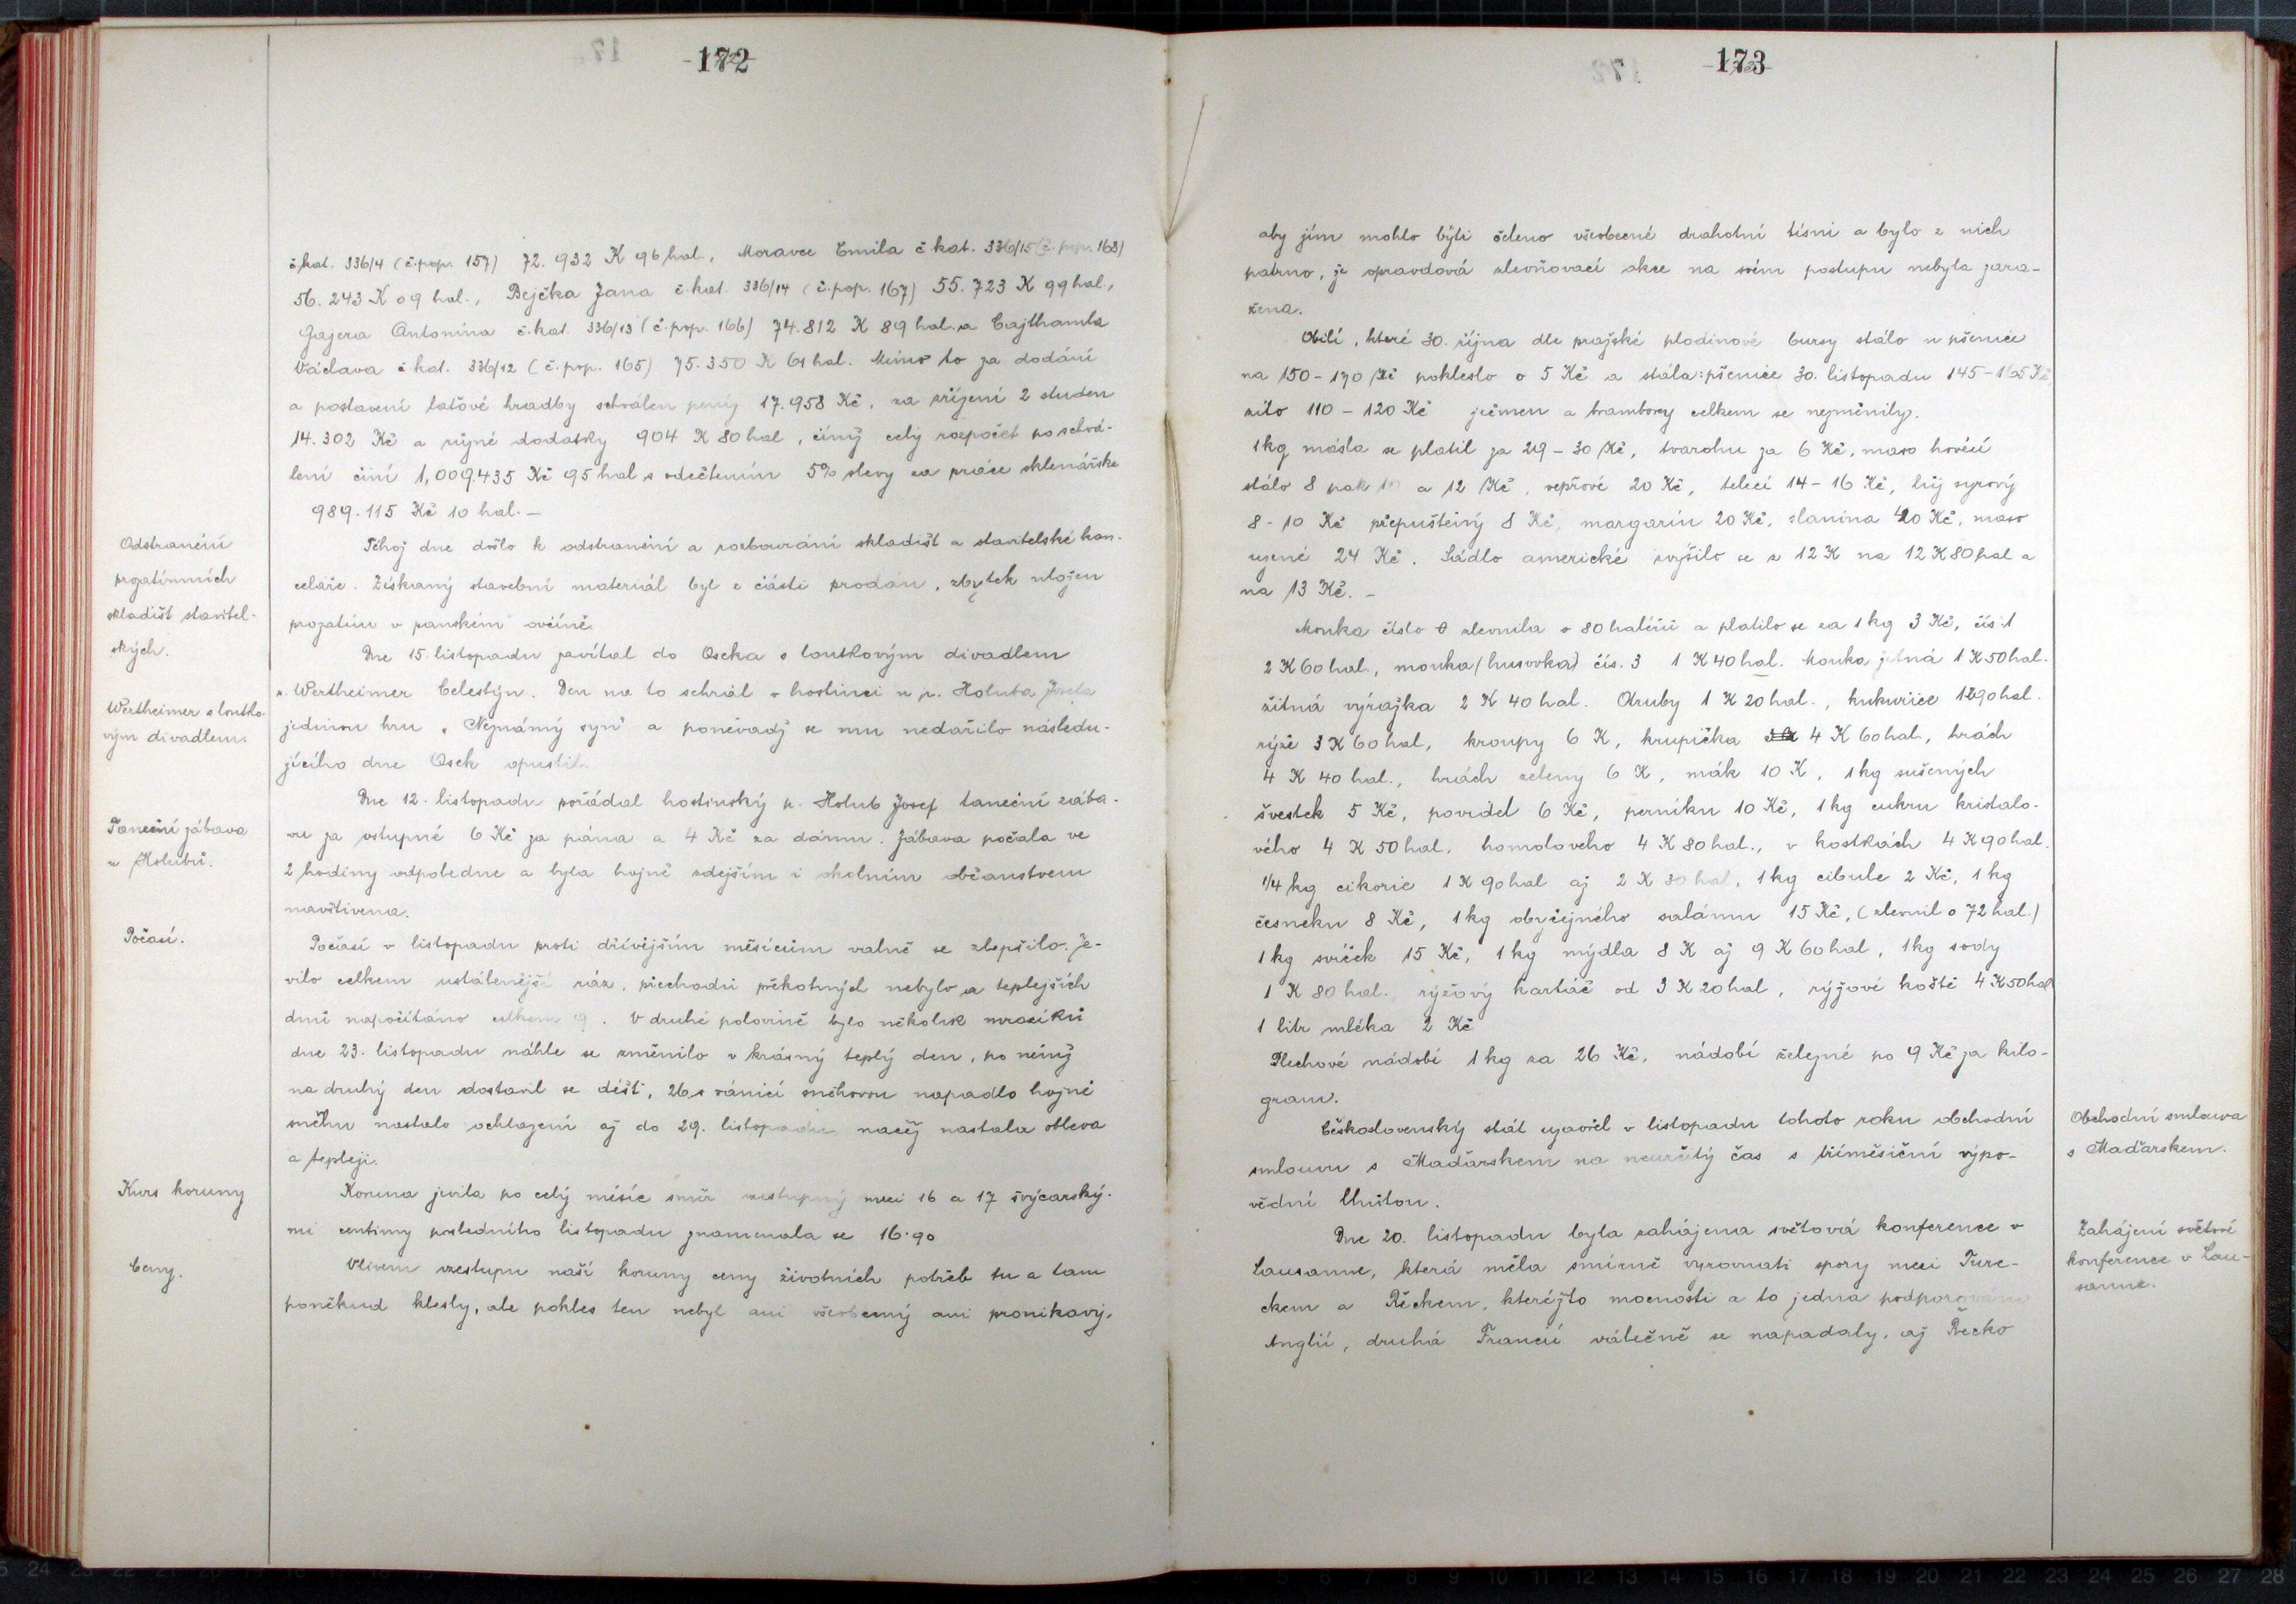 172
č.kat. 336/4 (č.pop. 157) 72.932 K 96 hal., Moravce Emila č kat. 336/15 (č. pop. 168)
56.243 K 09 hal., Bejčka Jana č. kat. 336/14 (č.pop. 167) 55.723 K 99 hal.,
Gajera Antonína č. kat. 336/13 (č. pop. 166) 74.812 K 89 hal. a Cajthamla
Václava č kat. 336/12 (č. pop. 165) 75.350 K 61 hal. Mimo to za dodání
a postavení laťové hradby schválen 17.958 Kč, za zřízení 2 studen
14.302 Kč a různé dodatky 904 K 80 hal, čímž celý rozpočet po schvá-
lení činí 1,009.435 Kč 95 hal s odečtením 5% slevy za práce sklenářské
989.115 Kč 10 hal. —
Odstranění
prozatímních
skladišť stavitel-
ských.
Téhož dne došlo k odstranění a rozbourání skladišť a stavitelské kan-
celáře. Získaný stavební materiál byl z části prodán, zbytek uložen
prozatím v panském ovčíně.
Wertheimer s loutko-
vým divadlem.
Dne 15. listopadu zavítal do Oseka s loutkovým divadlem
p. Wertheimer Celestýn. Den na to sehrál v hostinci u p. Holuba Josefa
jedinou hru „Neznámý syn" a poněvadž se mu nedařilo následu-
jícího dne Osek opustil.
Taneční zábava
u Holubů.
Dne 12. listopadu pořádal hostinský p. Holub Josef taneční zába-
vu za vstupné 6 Kč za pána a 4 Kč za dámu. Zábava počala ve
2 hodiny odpoledne a byla hojně zdejším i okolním občanstvem
navštívena.
Počasí.
Počasí v listopadu proti dřívějším měsícům valně se zlepšilo. Je-
vilo celkem ustálenější ráz, přechodů překotných nebylo a teplejších
dnů napočítáno celkem 9. V druhé polovině bylo několik mrazíků
dne 23. listopadu náhle se změnilo v krásný teplý den, po němž
na druhý den dostavil se déšť, 26. s vánicí sněhovou napadlo hojně
sněhu nastalo ochlazení až do 29. listopadu načež nastala obleva
a tepleji.
Kurs koruny
Koruna jevila po celý měsíc směr vzestupný mezi 16 a 17 švýcarský-
mi centimy posledního listopadu znamenala se 16.90
Ceny.
Vlivem vzestupu naší koruny ceny životních potřeb tu a tam
poněkud klesly, ale pokles ten nebyl ani všeobecný ani pronikavý,
173
aby jím mohlo býti čeleno všeobecné drahotní tísni a bylo z nich
patrno, že opravdová zlevňovací akce na svém postupu nebyla zara-
žena.
Obilí, které 30. října dle pražské plodinové bursy stálo u pšenice
na 150-170 Kč pokleslo o 5 Kč a stála: pšenice 30. listopadu 145-165 Kč,
žito 110 - 120 Kč ječmen a brambory celkem se nezměnily.
1 kg másla se platil za 29 - 30 Kč, tvarohu za 6 Kč, maso hovězí
stálo 8 pak 10 a 12 Kč, vepřové 20 Kč, telecí 14 - 16 Kč, lůj syrový
8 - 10 Kč přepuštěný 8 Kč, margarin 20 Kč, slanina 20 Kč, maso
uzené 24 Kč. Sádlo americké zvýšilo se z 12 K na 12 K 80 hal a
na 13 Kč. —
Mouka číslo 0 zlevnila o 80 haléřů a platilo se za 1 kg 3 Kč, čís 1
2 K 60 hal, mouka (husovka) čís. 3 1 K 40 hal. Mouka 1 K 50 hal.
žitná výražka 2 K 40 hal. Otruby 1 K 20 hal., kukuřice 1 K 90 hal.
rýže 3 K 60 hal, kroupy 6 K, krupička 4 K 60 hal, hrách
4 K 40 hal., hrách zelený 6 K, mák 10 K, 1 kg sušených
švestek 5 Kč, povidel 6 Kč, perníku 10 Kč, 1 kg cukru kristalo-
vého 4 K 50 hal, homolového 4 K 80 hal., v kostkách 4 K 90 hal.
1/4 kg cikorie 1 K 90 hal až 2 K 30 hal, 1 kg cibule 2 Kč, 1 kg
česneku 8 Kč, 1 kg obyčejného salámu 15 Kč, (zlevnil o 72 hal.)
1 kg svíček 15 Kč, 1 kg mýdla 8 K až 9 K 60 hal, 1 kg sody
1 K 80 hal. rýžový kartáč od 3 K 20 hal, rýžové koště 4 K 50 hal
1 litr mléka 2 Kč
Plechové nádobí 1 kg za 26 Kč, nádobí železné po 9 Kč za kilo-
gram.
Československý stát uzavřel v listopadu tohoto roku obchodní
smlouvu s Maďarskem na neurčitý čas s tříměsíční výpo-
vědní lhůtou.
Obchodní smlouva
s Maďarskem.
Dne 20. listopadu byla zahájena světová konference v
Lausanne, která měla smírně vyrovnati spory mezi Ture-
ckem a Řeckem, kteréžto mocnosti a to jedna podporována
Anglií, druhá Francií válečně se napadaly, až Řecko
Zahájení světové
konference v Lau-
sanne.